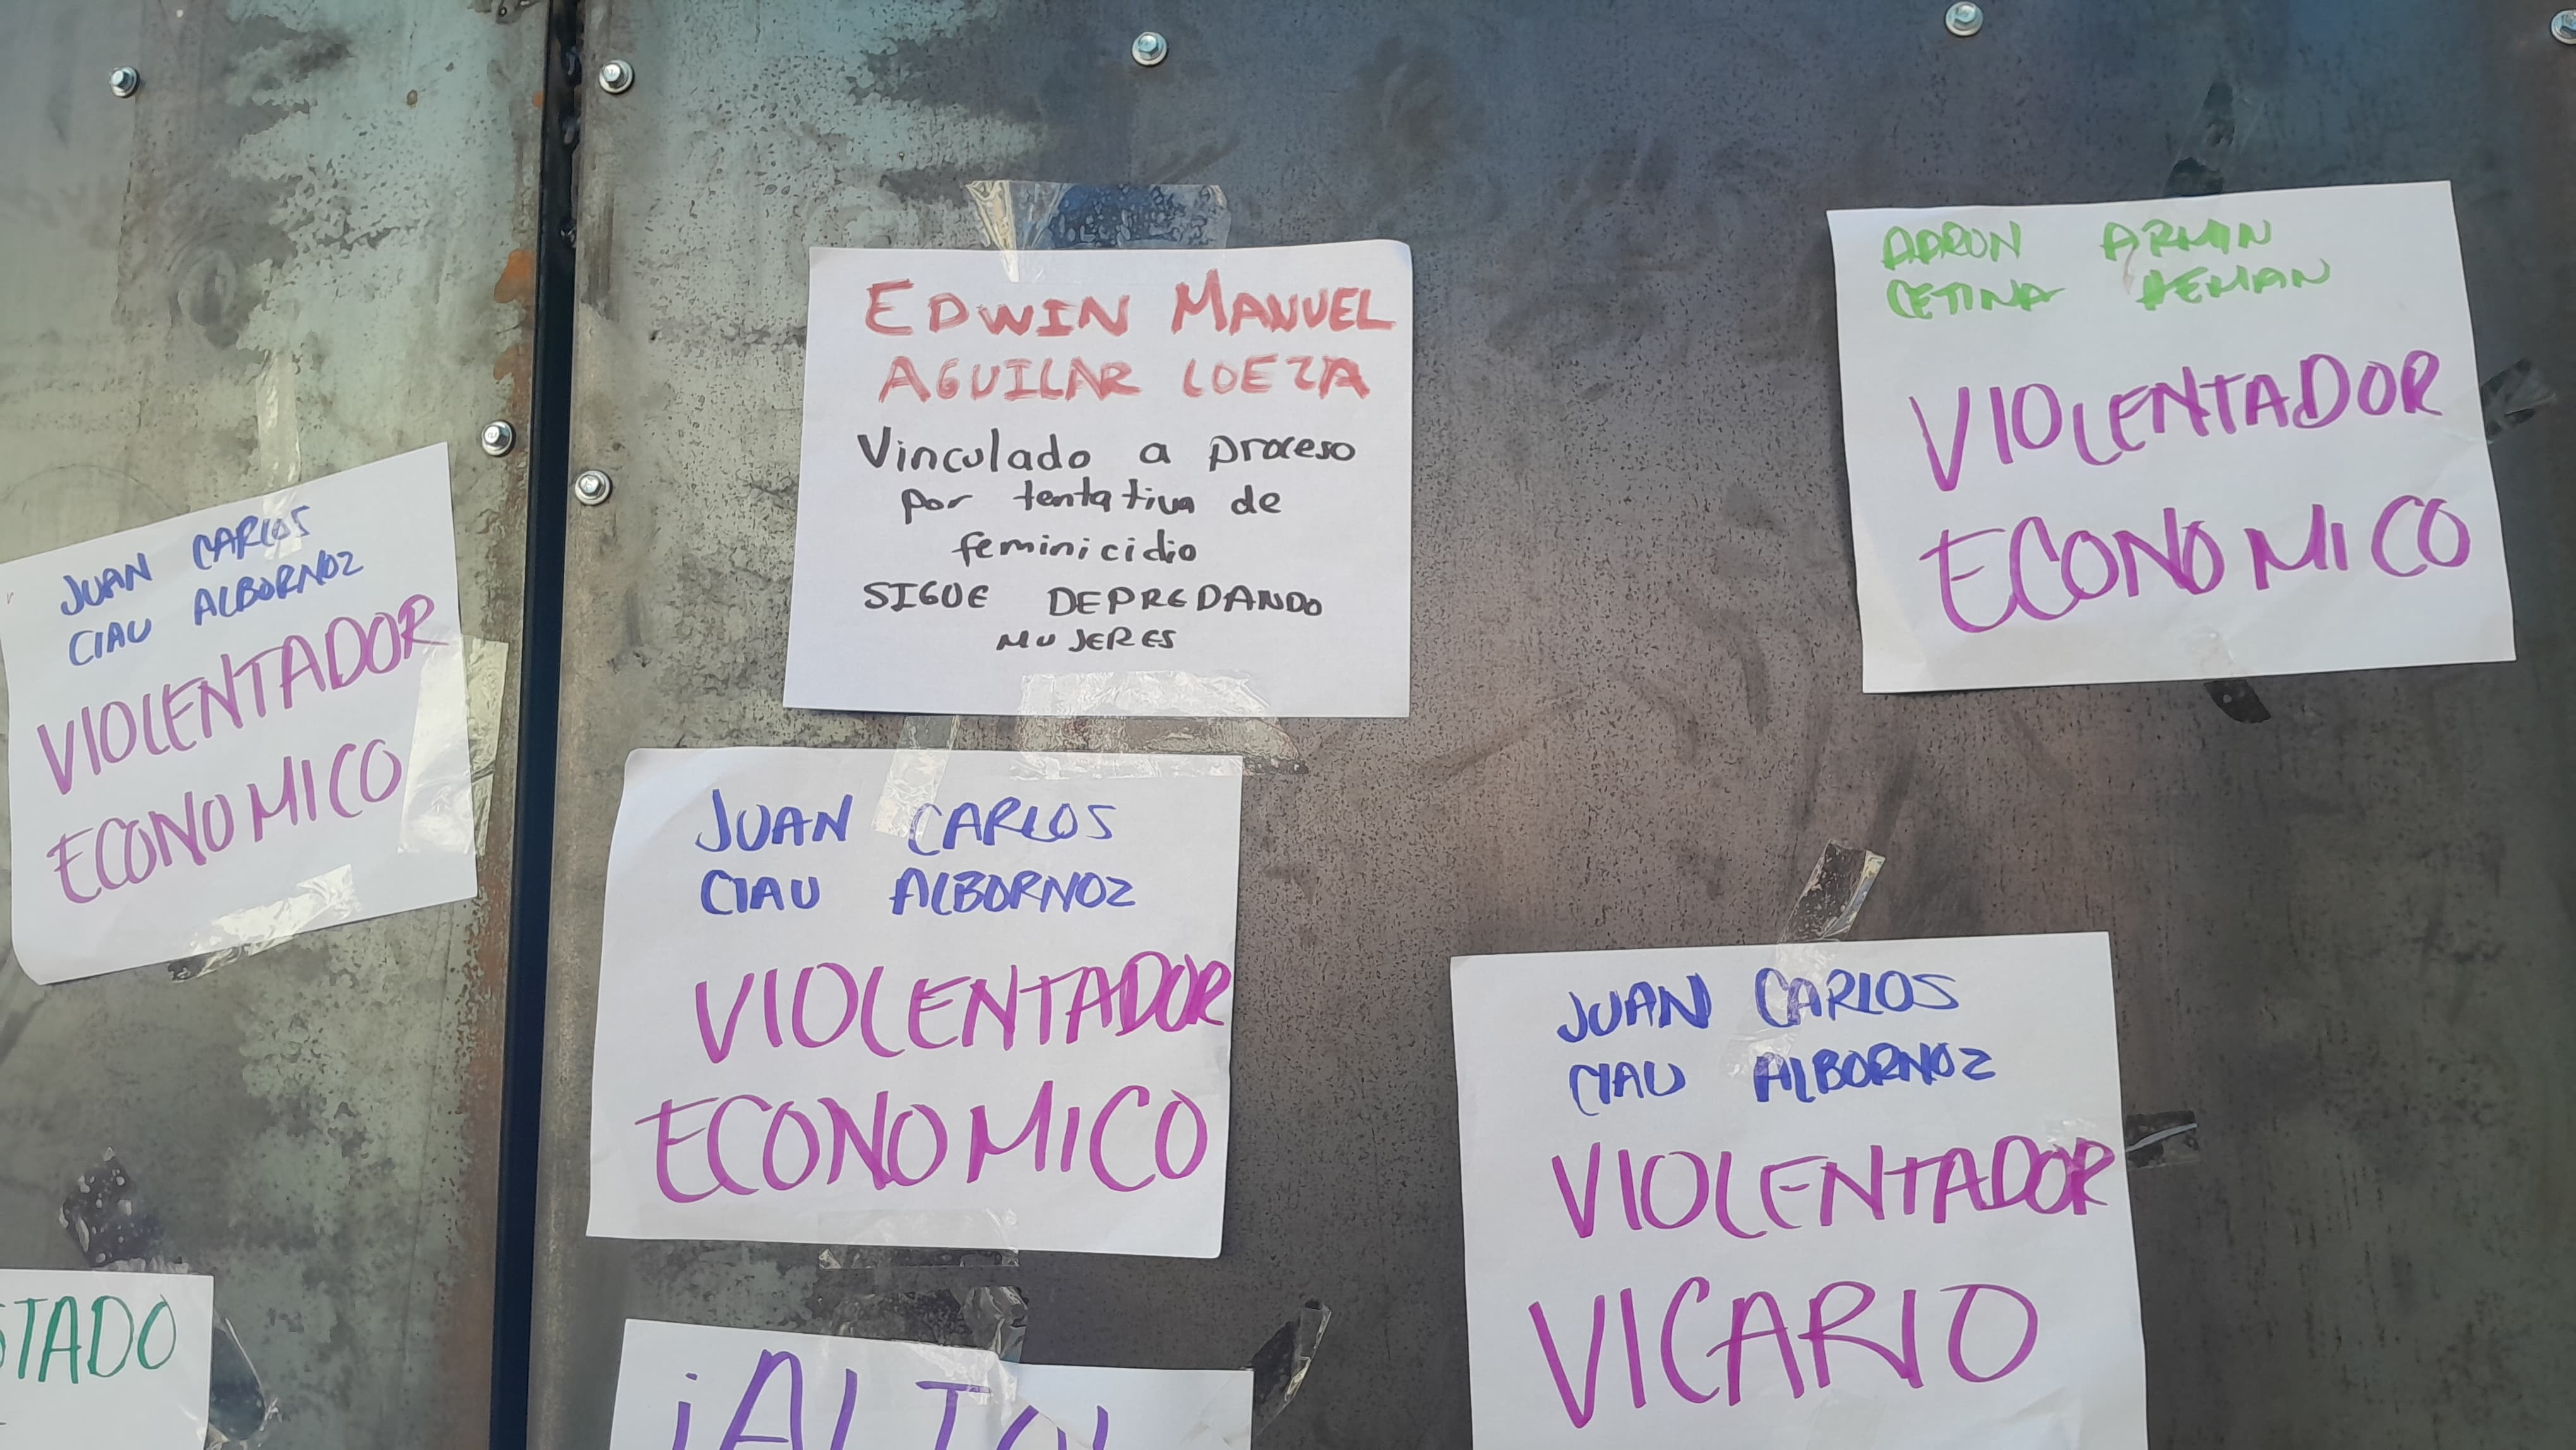 JUAN CARLOS
CIAU ALBORNOZ
VIOLENTADOR
ECONOMICO
EDWIN MANUEL
AGUILAR LOEZA
Vinculado a proceso
por tentativa de
feminicidio
SIGUE DEPREDANDO
MUJERES
AARON ARMIN
CETINA
VIOLENTADOR
ECONOMICO
JUAN CARLOS
CIAU ALBORNOZ
VIOLENTADOR
ECONOMICO
JUAN CARLOS
CIAU ALBORNOZ
VIOLENTADOR
VICARIO
STADO
¡ALTO!